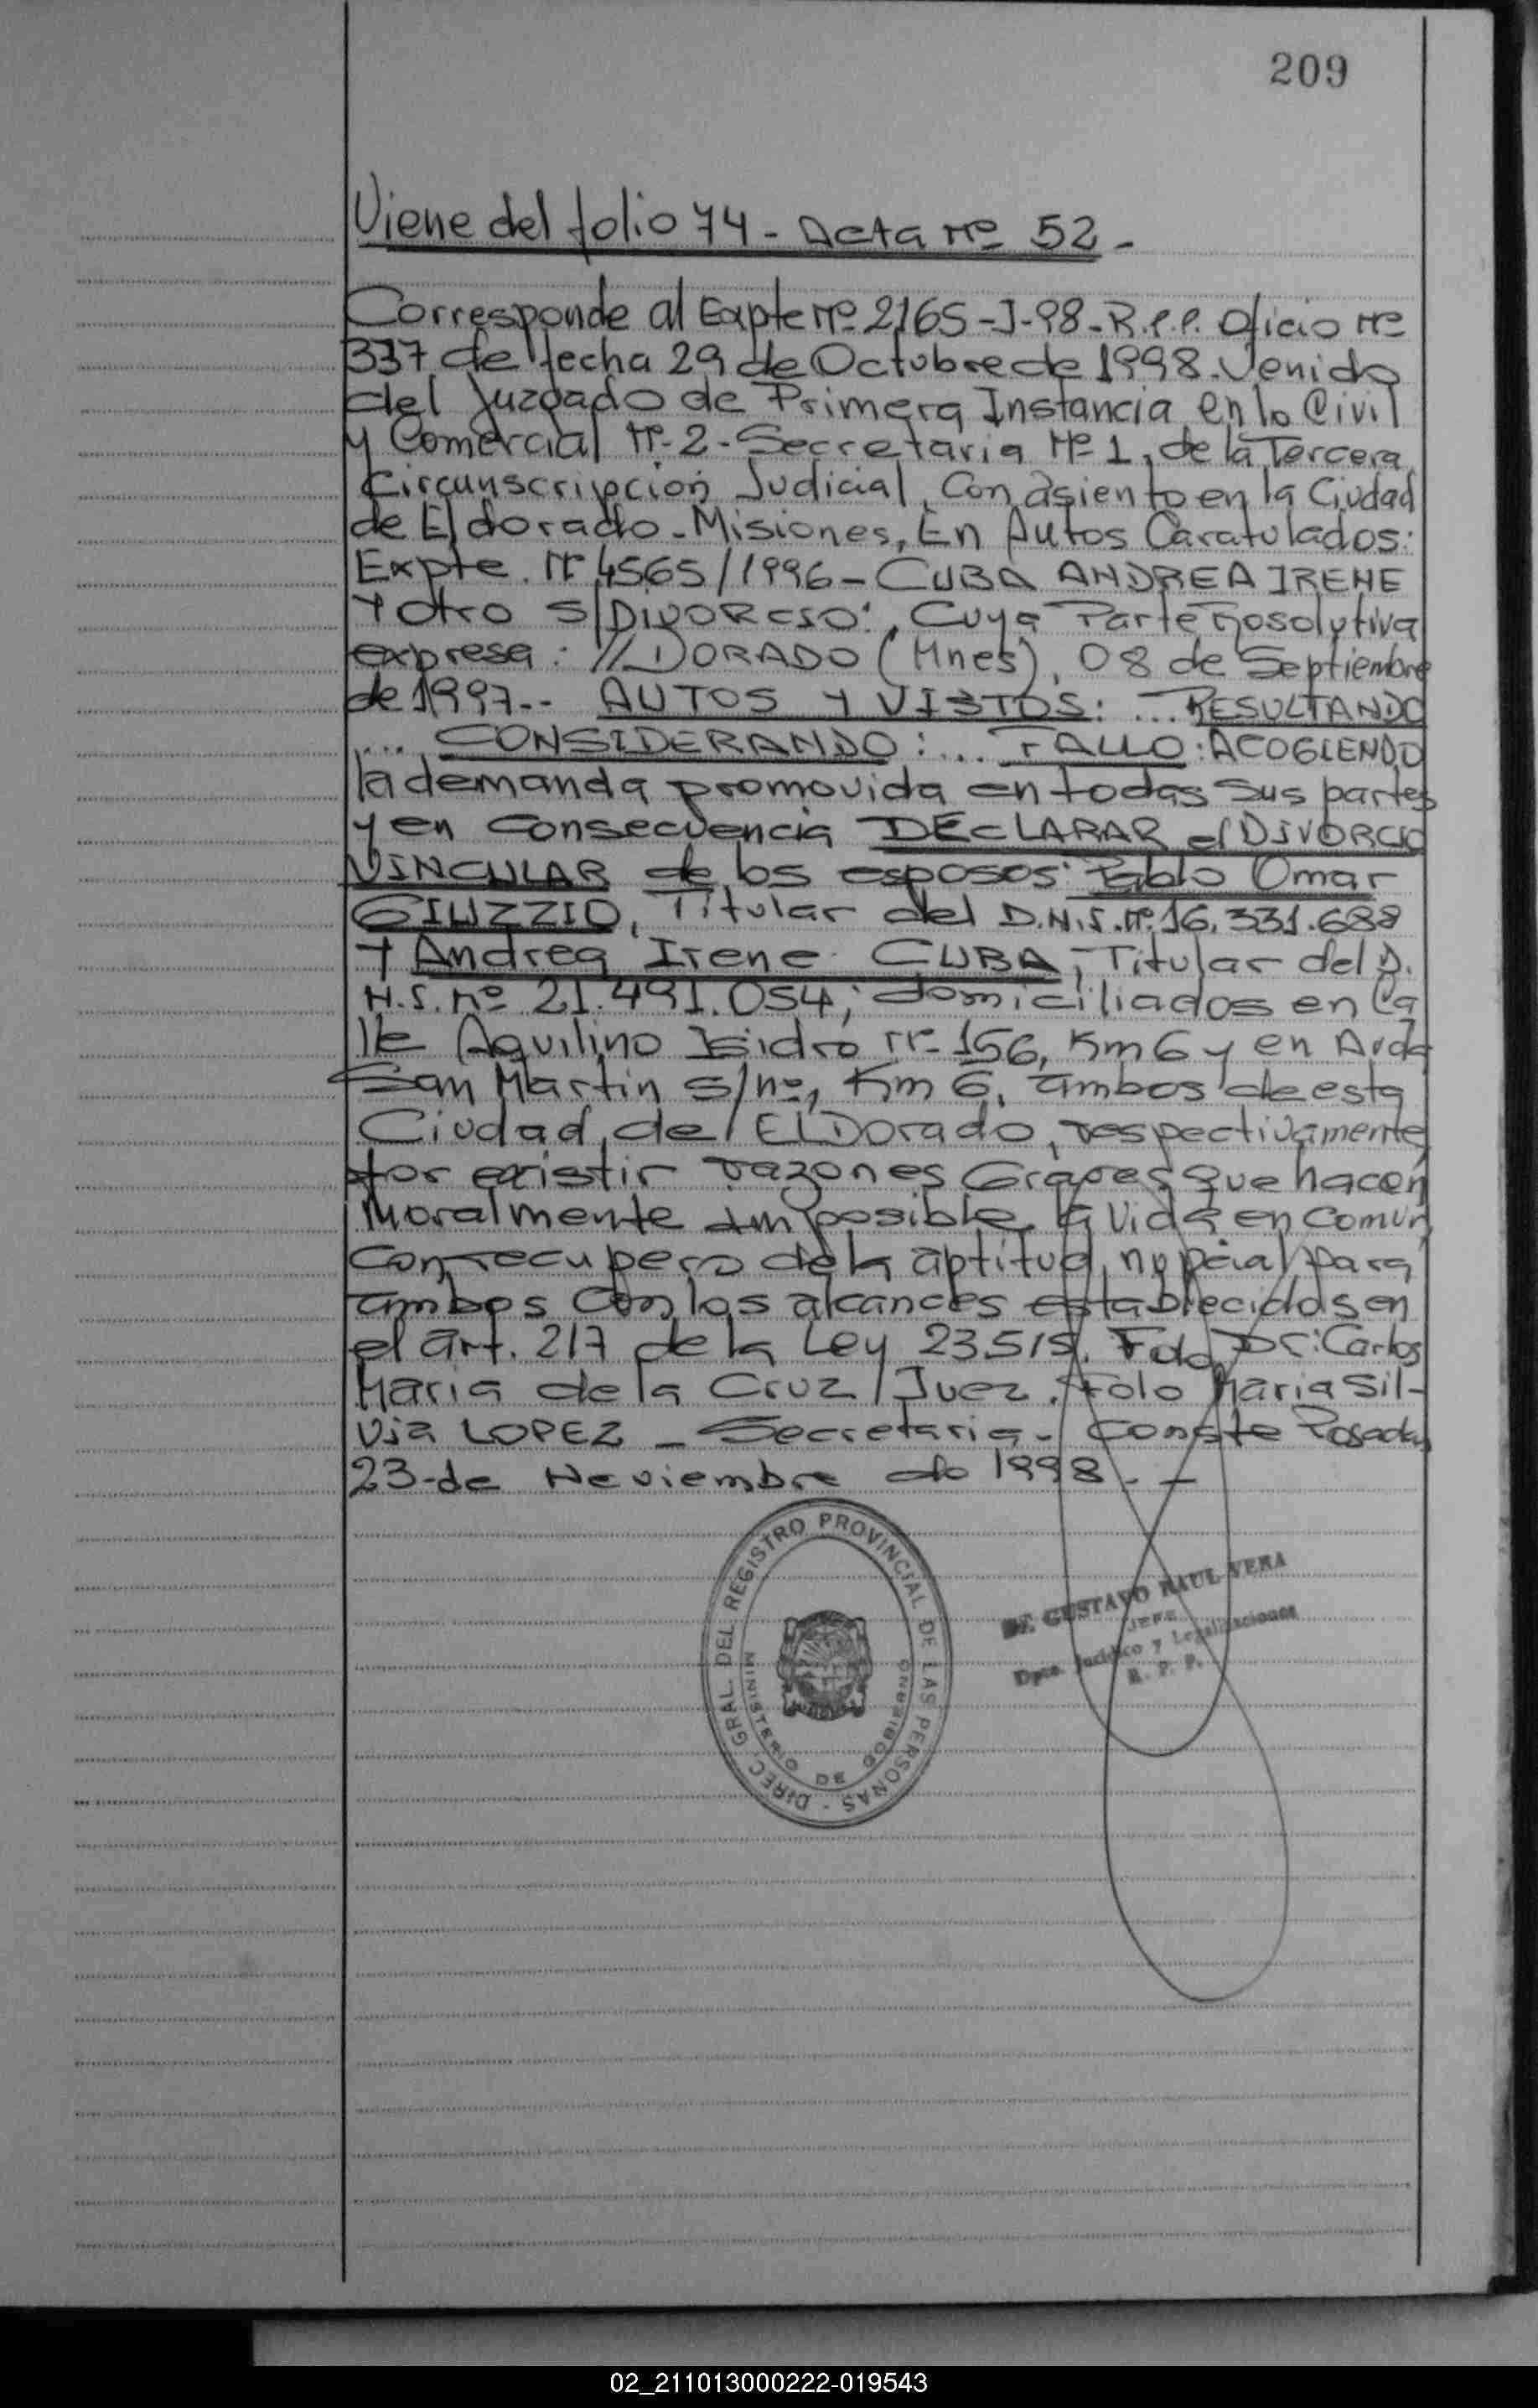 209
Viene del folio 74 - Acta Nº 52 -
Corresponde al Expte Nº 2165-J-98-R.P.P. Oficio Nº
337 de fecha 29 de Octubre de 1998. Venido
del Juzgado de Primera Instancia en lo Civil
y Comercial Nº 2 - Secretaria Nº 1, de la Tercera
Circunscripción Judicial, Con asiento en la Ciudad
de Eldorado - Misiones, En Autos Caratulados:
Expte. Nº 4565/1996 - CUBA ANDREA IRENE
Y otro S/DIVORCIO", Cuya Parte Resolutiva
expresa: //DORADO (Mnes), 08 de Septiembre
de 1997.- AUTOS Y VISTOS: ... RESULTANDO
... CONSIDERANDO: ... FALLO: ACOGIENDO
la demanda promovida en todas sus partes
y en consecuencia DECLARAR el DIVORCIO
VINCULAR de los esposos Pablo Omar
GIUZZIO, Titular del D.N.I. Nº 16.331.688
Y Andrea Irene CUBA, Titular del D.
N.I. Nº 21.491.054, domiciliados en Ca
lle Aquilino Isidro Nº 156, Km 6 y en Avda
San Martin s/nº, Km 6, ambos de esta
Ciudad de ElDorado, respectivamente
por existir razones Graves que hacen
Moralmente imposible la vida en comun
con recupero de la aptitud nupcial para
ambos con los alcances establecidos en
el art. 217 de la Ley 23.515. Fdo Dr: Carlos
Maria de la Cruz / Juez. Fdo Maria Sil-
via LOPEZ - Secretaria - Conste Posadas
23 de Noviembre de 1998.-
DIREC. GRAL. DEL REGISTRO PROVINCIAL DE LAS PERSONAS -
MINISTERIO DE GOBIERNO
GUSTAVO RAUL VERA
JEFE
Dpto. Juridico y Legalizaciones
R. P. P.
02_211013000222-019543